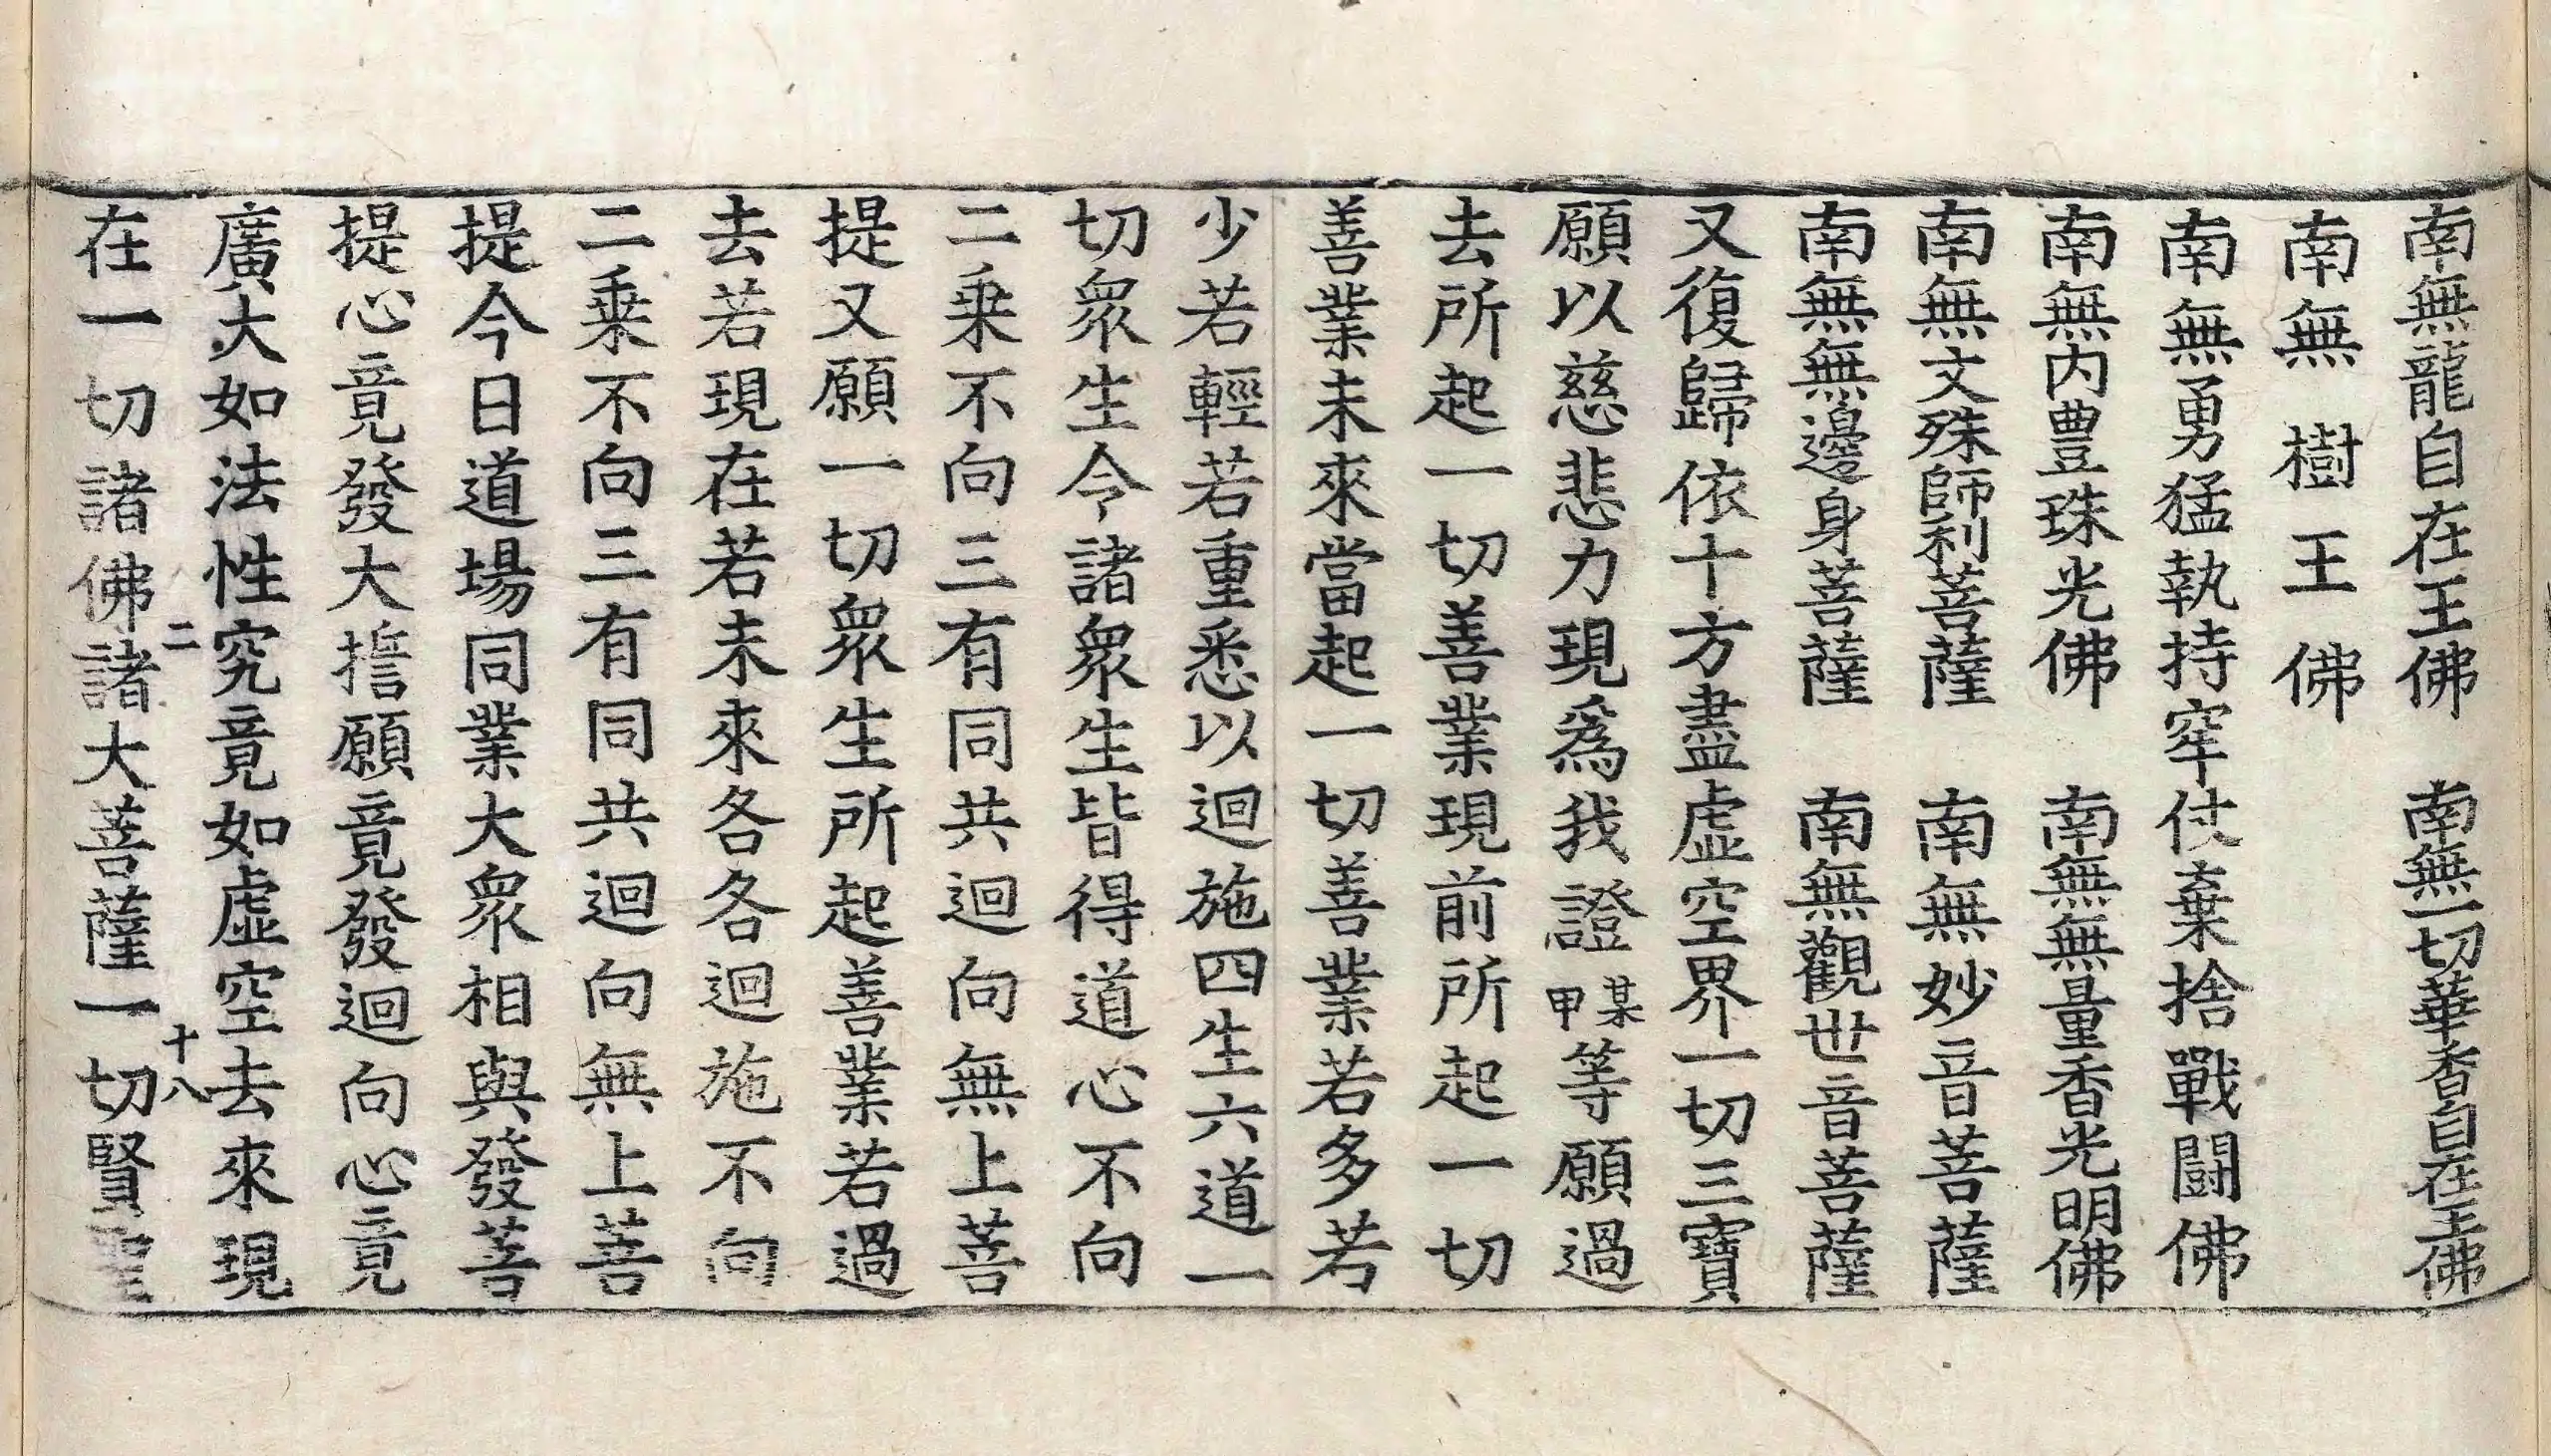 南無龍自在王佛　南無一切華香自在王佛
南無樹王佛
南無勇猛執持牢仗棄捨戰鬪佛
南無内豊珠光佛　南無無量香光明佛
南無文殊師利菩薩　南無妙音菩薩
南無無邊身菩薩　南無觀世音菩薩
又復歸依十方盡虛空界一切三寶
願以慈悲力現爲我證某甲等願過
去所起一切善業現前所起一切
善業未來當起一切善業若多若
少若輕若重悉以迴施四生六道一
切衆生令諸衆生皆得道心不向
二乗不向三有同共迴向無上菩
提又願一切衆生所起善業若過
去若現在若未來各各迴施不向
二乗不向三有同共迴向無上菩
提今日道場同業大衆相與發菩
提心竟發大誓願竟發迴向心竟
廣大如法性究竟如虛空去來現
二　十八
在一切諸佛諸大菩薩一切賢聖